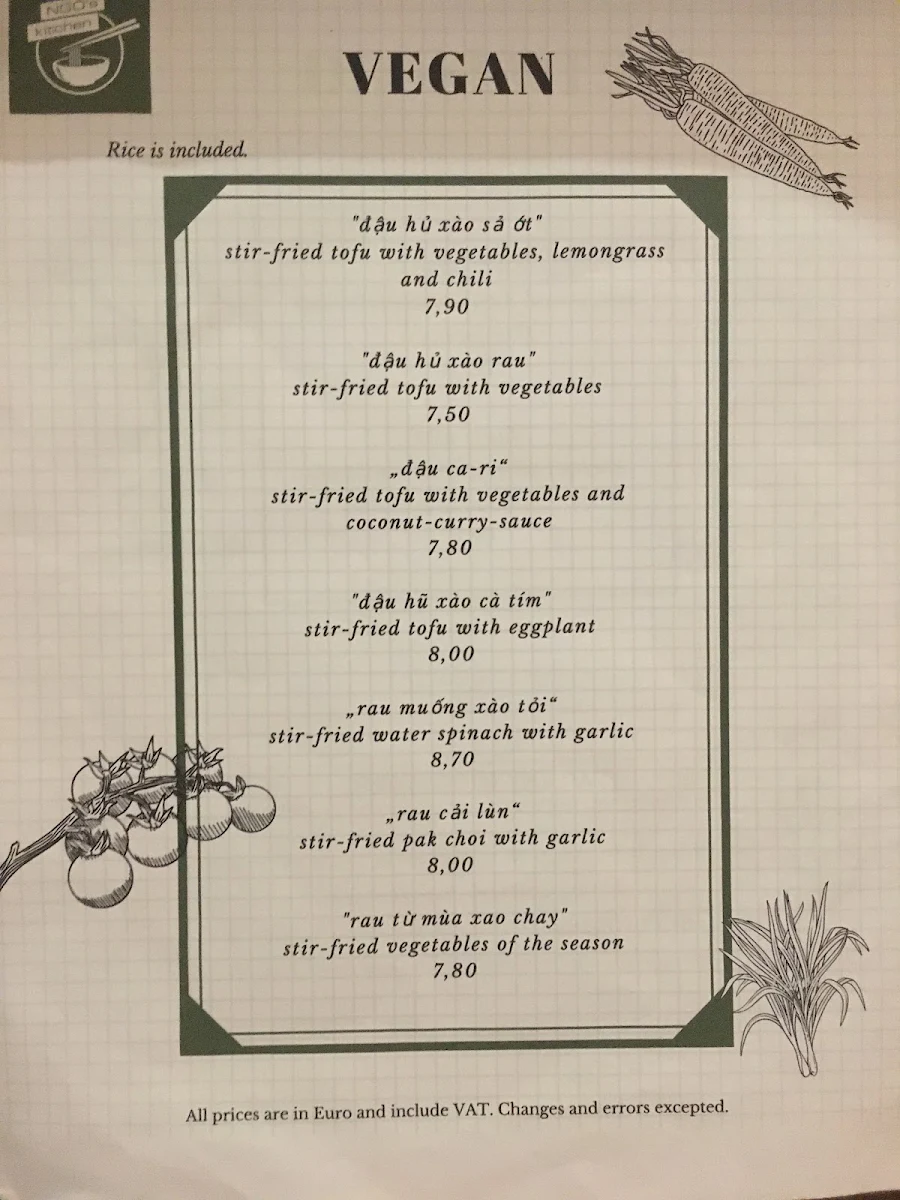 NGO's
kitchen
VEGAN
Rice is included.
"đậu hủ xào sả ớt"
stir-fried tofu with vegetables, lemongrass
and chili
7,90
"đậu hủ xào rau"
stir-fried tofu with vegetables
7,50
„đậu ca-ri“
stir-fried tofu with vegetables and
coconut-curry-sauce
7,80
"đậu hũ xào cà tím"
stir-fried tofu with eggplant
8,00
„rau muống xào tỏi“
stir-fried water spinach with garlic
8,70
„rau cải lùn“
stir-fried pak choi with garlic
8,00
"rau từ mùa xao chay"
stir-fried vegetables of the season
7,80
All prices are in Euro and include VAT. Changes and errors excepted.